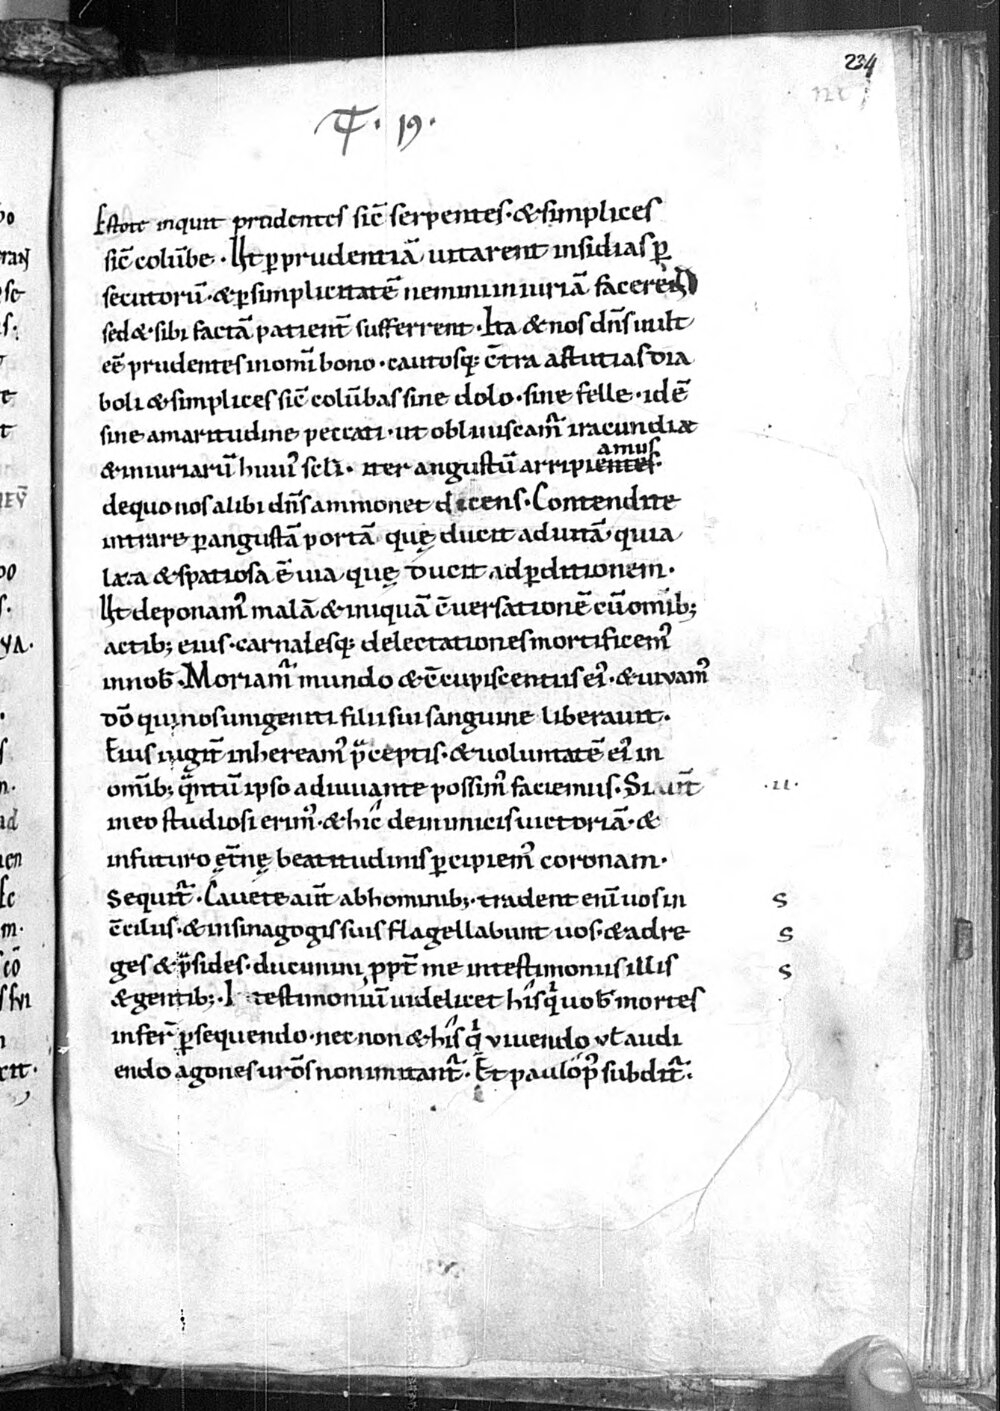 234
T. 19.
Estote inquit prudentes sic̄ serpentes. & simplices
sic̄ colūbe. Ut ꝑ prudentiā uitarent insidias ꝑ
secutorū. & ꝑ simplicitatē nemini iniuriā facerēt
sed &. sibi factā patient̄ sufferrent. Ita & nos dn̄s uult
eē prudentes in om̄i bono. cautosq; c̄tra astutias dia
boli & simplices sic̄ colūbas sine dolo. sine felle. idē
sine amaritudine peccati. ut obliuiscam̃ iracundiæ
& iniuriarū huiꝰ sc̄li. iter angustū arripientes.
amus
de quo nos alibi dn̄s ammonet dicens. Contendite
intrare ꝑ angustā portā quę ducit ad uitā quia
lata & spatiosa ē uia quę ducit ad ꝑditionem.
Ut deponamꝰ malā & iniquā c̄uersationē cū om̄ib;
actib; eius. carnalesq; delectationes mortificemꝰ
in nob̄. Moriam̃ mundo & c̄cupiscentiis eiꝰ. & uiuamꝰ
dō qui nos unigeniti filii sui sanguine liberauit.
Eius iugit̄ inhereamꝰ p̄ceptis. & uoluntatē eiꝰ in
om̄ib; qͣntū ipso adiuuante possimꝰ faciemus. Si
.II.
meo studiosi erimꝰ. & hic de inimicis uictoriā. &
in futuro ęt̄nę beatitudinis ꝑcipiemꝰ coronam.
Sequit̃. Cauete aūt ab hominib;. tradent enī uos in
S
c̄ciliis. & in sinagogis suis flagellabunt uos. & ad re
S
ges & p̄sides. ducimini ꝓpt̄ me in testimoniis illis
S
& gentib;. I testimoniū uidelicet his qͥ uob̄ mortes
infer̄ ꝑsequendo. nec non & his qͥ uiuendo ut̄ audi
endo agones ur̄os non imitant̃. Et paulo pꝰ subdit̃.